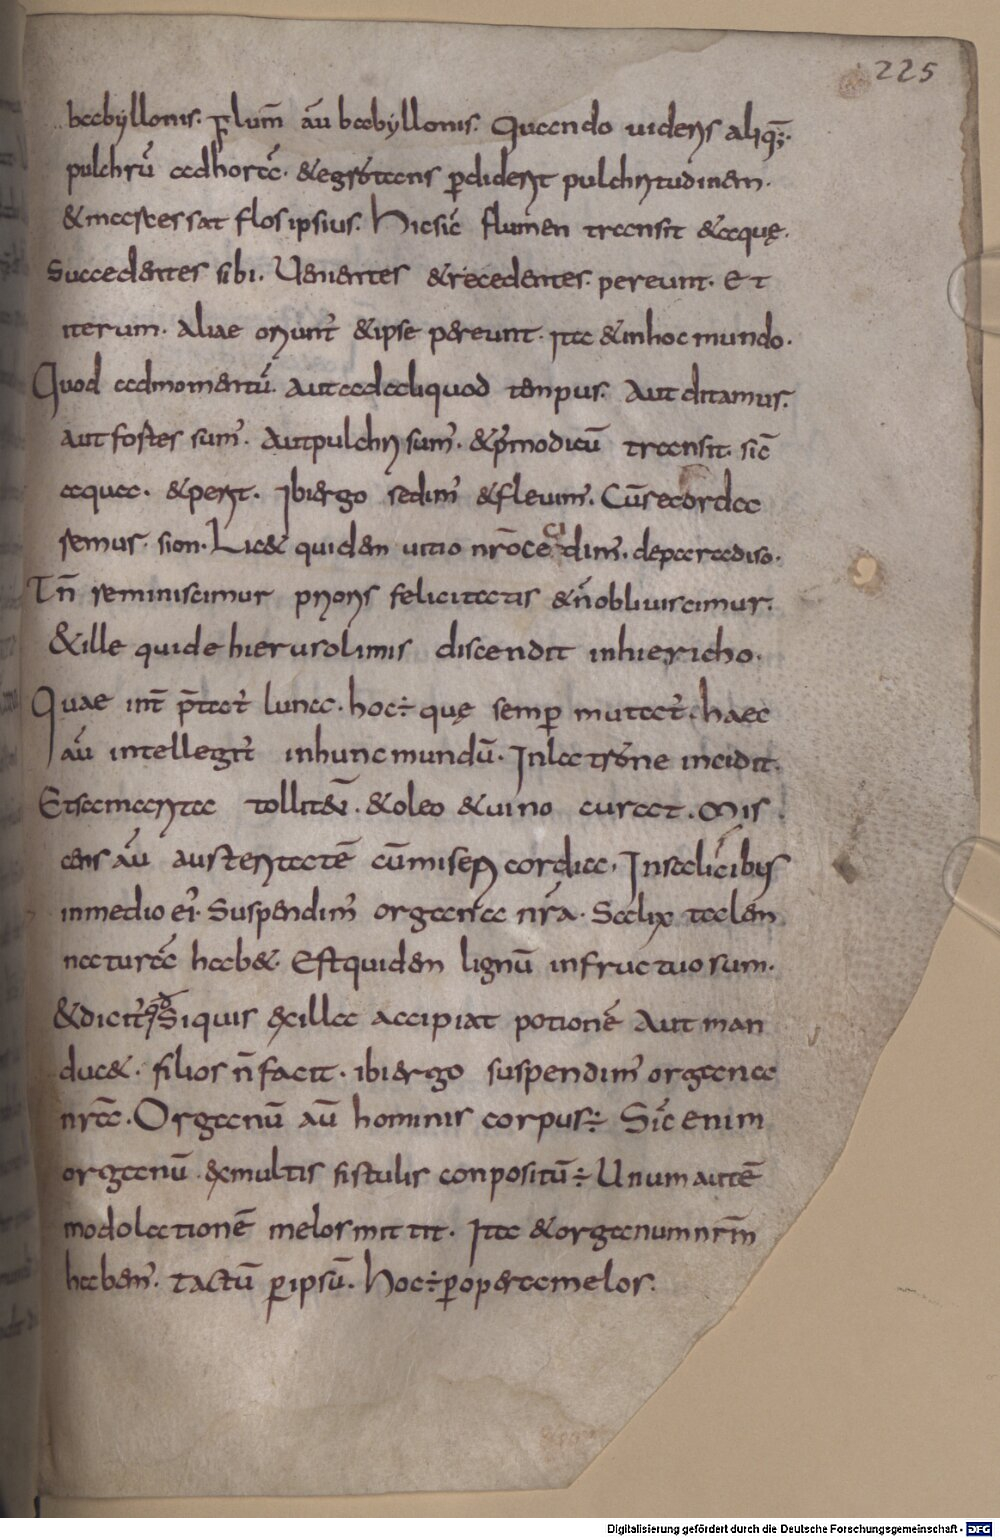 225
babyllonis. Flum̄ aū babyllonis. Quando uideris aliq̄;
pulchrū adhortā. & egrōtans ꝑdiderit pulchritudinem.
& macies sat flos ipsius. Hic sic̄ flumen transit & aquę.
Succedentes sibi. Uenientes & recedentes. pereunt. Et
iterum. aliae oriunt̄ & ipse pereunt. Ita & in hoc mundo.
Quod admomentū. aut adaliquod tempus. Aut ditamus.
aut fortes sum̄. Aut pulchri sum̄. & ꝑ modicū transit. sic̄
aqua. & perit. Ibi ergo sedim̄ & fleuim̄. Cū recorda
remus. sion. Lic& quidem uitio nr̄o cecidim̄. de paradiso.
Tn̄ reminiscimur prioris felicitatis & n̄ obliuiscimur.
& ille qui de hierusolimis discendit in hiericho.
Quae int̄ p̄tat̄ luna. hoc ÷ quę semꝑ mutat̄. haec
aū intellegit̄ in hunc mundū. In latrōne incidit.
Et samarita tollit eū. & oleo & uino curat. Mis
cens aū austeritatē cū misericordia. In salicibus
in medio ei. Suspendim̄ organa nr̄a. Salix talem
naturā hab&. Est quidem lignū infructuosum.
& dicit̄ qd̄ Si quis ex illa accipiat potionē Aut man
duc&. filios n̄ facit. ibi ergo suspendim̄ organa
nr̄ā. Organū aū hominis corpus ÷ Sic̄ enim
organū ex multis fistulis conpositū ÷ Unum autē
modolationē melos mittit. Ita & organum nr̄m̄
habem̄. Tactū ꝑ ipsū. Hoc ÷ ꝑ opera melos.
Digitalisierung gefördert durch die Deutsche Forschungsgemeinschaft - DFG